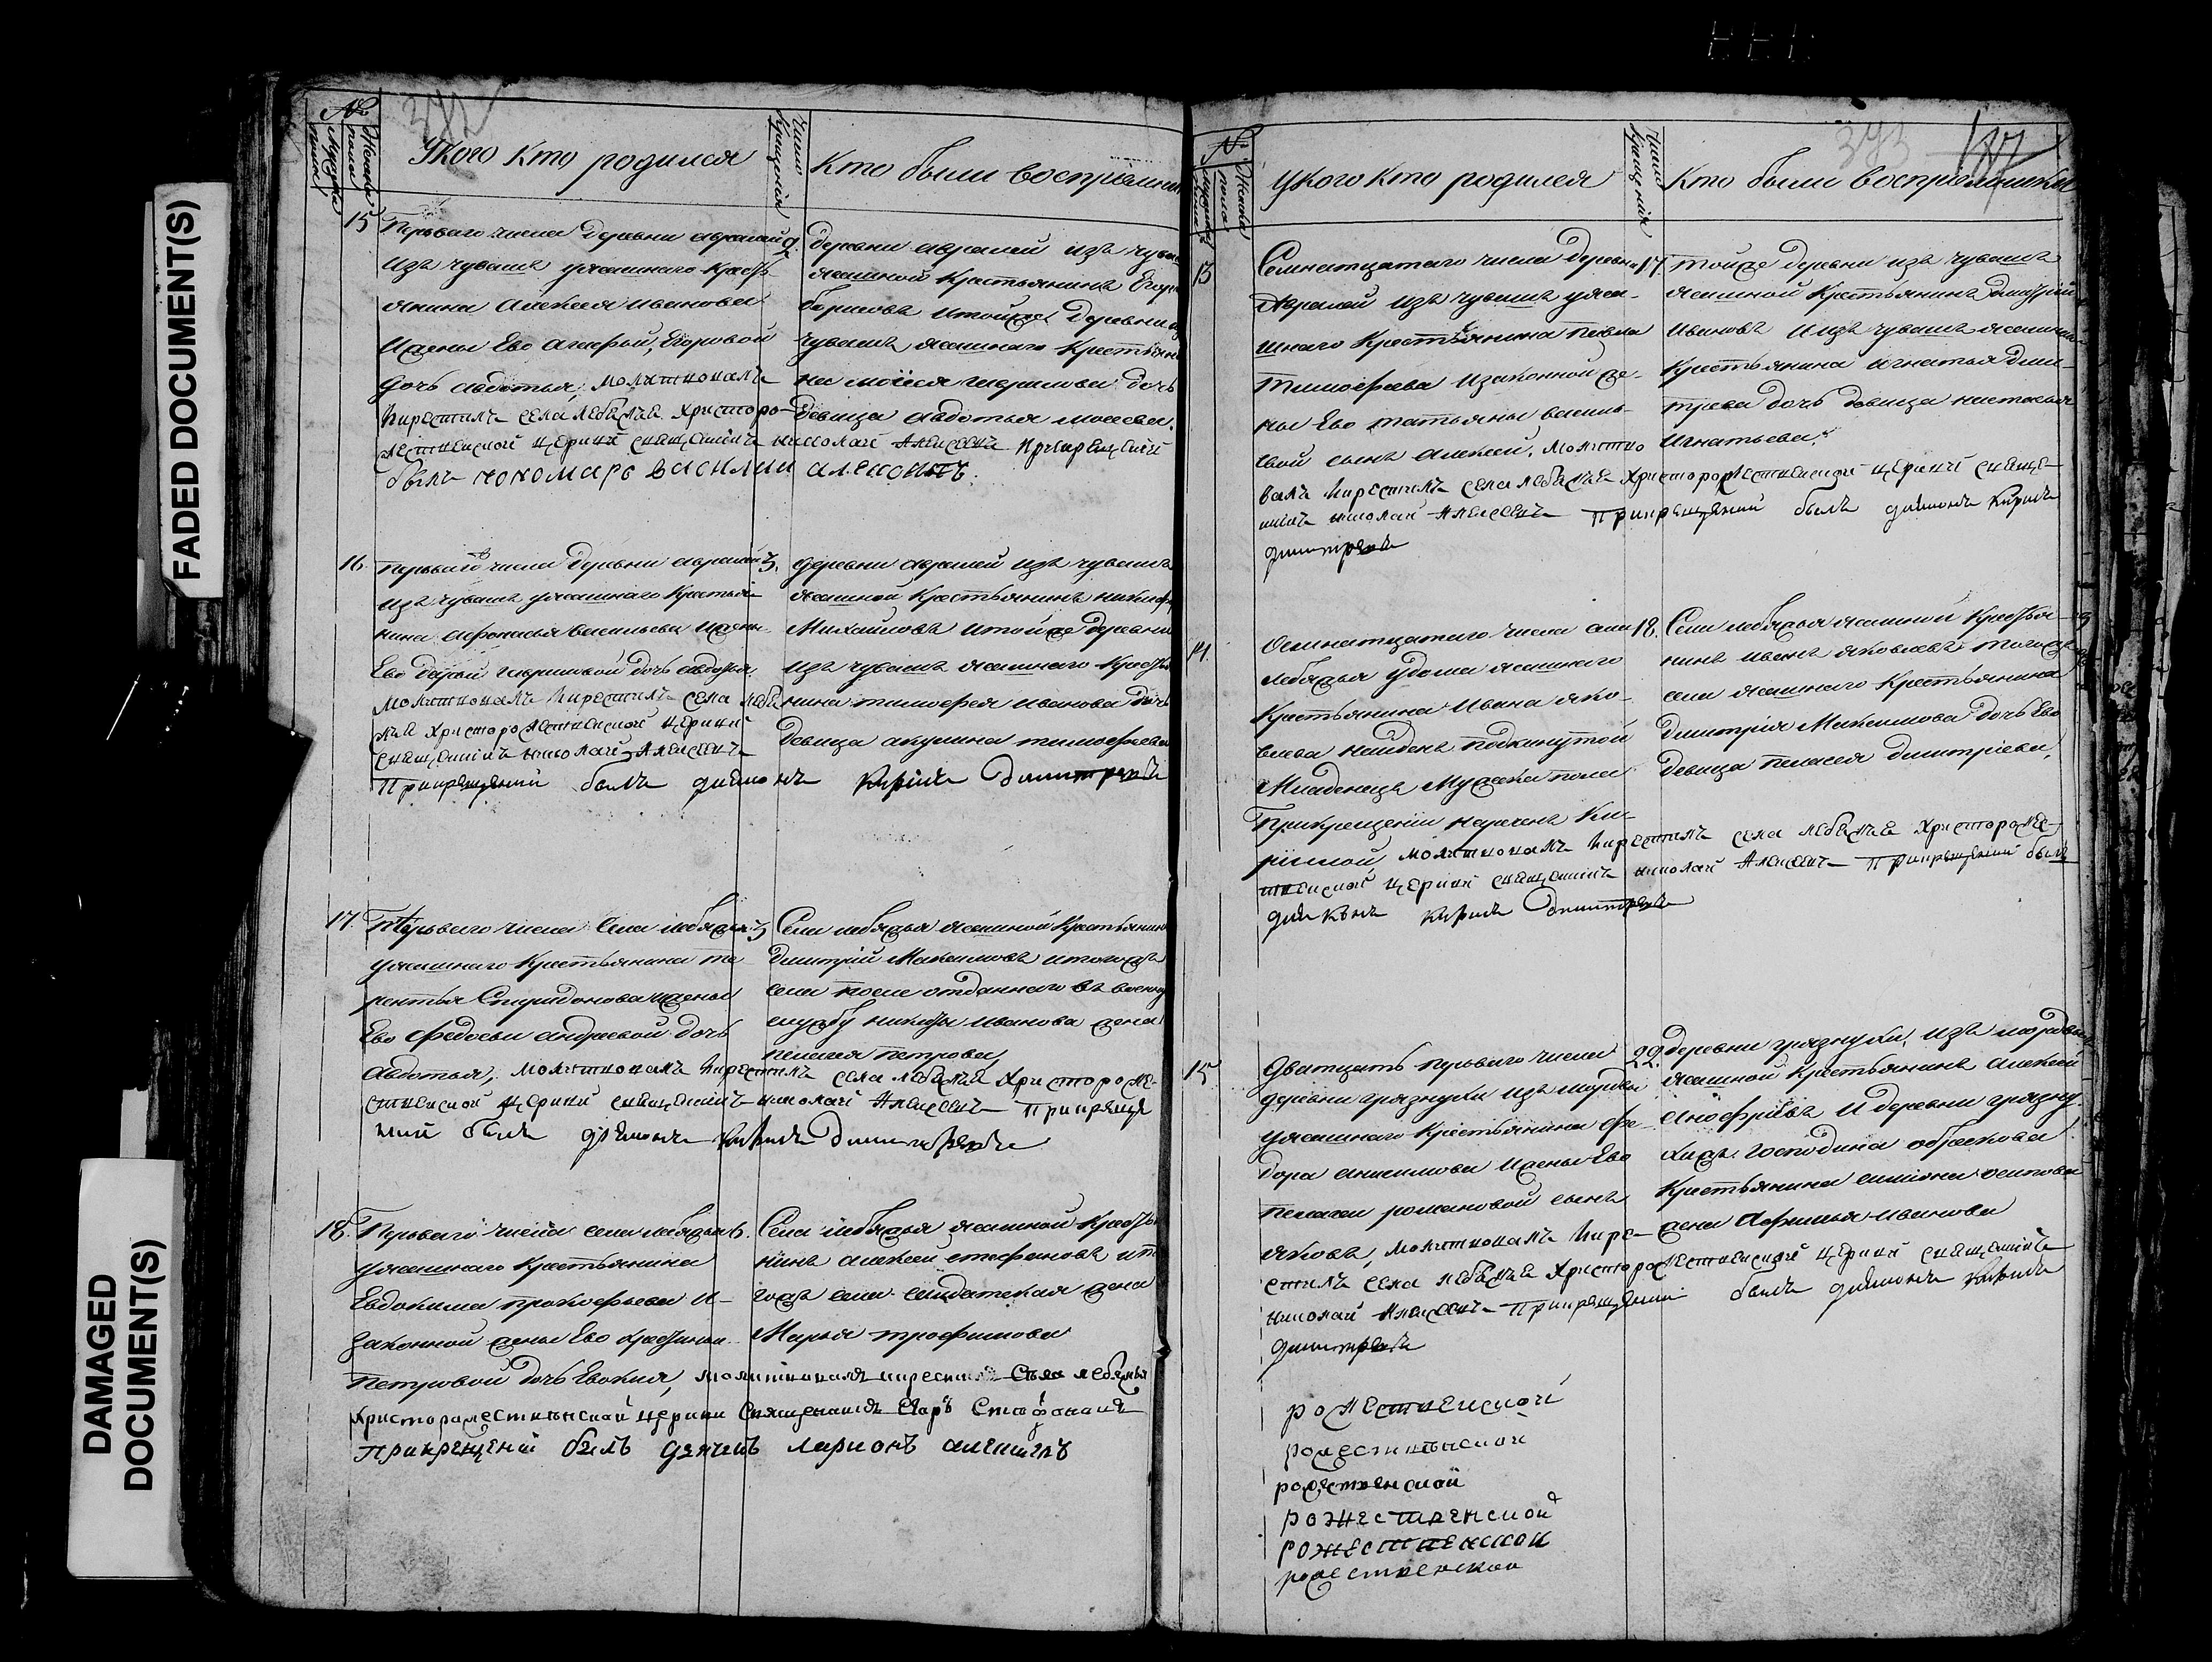 FADED DOCUMENT(S)
DAMAGED
DOCUMENT(S)
392
№
Мужеска пола
Женска пола
У кого кто родился
Число крещения
Кто были восприемники
15
Перьваго числа деревни авралей
изъ чувашъ уясашнаго кресть-
янина Алексея иванова
ижены Ево агафьи, Егоровой
дочь авдотья, молитвовалъ
икрестилъ села лебяжья христоро-
жественской церкви священникъ николай Алексеевъ прикрещении
былъ пономарь василии
2
деревни авралей изъ чувашъ
ясашной крестьянинъ Егоръ
борисовъ итойже деревни изъ
чувашъ ясашнаго крестьяни
на моисея гаврилова дочь
девица авдотья моисеева.
16
перьваго числа деревни авралей
изъ чувашъ уясашнаго крестья-
нина афонасья васильева ижены
Ево дарьи гавриловой дочь авдотья
молитвовалъ икрестилъ села лебя
жья христорожественской церкви
священникъ николай Алексеевъ
прикрещении былъ дьяконъ кирилъ димитревъ
3.
деревни авралей изъ чувашъ
ясашной крестьянинъ никифоръ
Михайловъ итойже деревни
изъ чувашъ ясашнаго крестья
нина тимофея иванова дочь
девица акулина тимофеева
17.
Перьваго числа села лебяжья
уясашнаго крестьянина те
рентья Спиридонова ижены
Ево федосьи андреевой дочь
авдотья, молитвовалъ икрестилъ села лебяжья христороже-
ственской церкви священникъ николай Алексеевъ прикреще
нии былъ дьяконъ кирилъ димитревъ
3
Села лебяжья ясашной крестьянинъ
димитрий Максимовъ итогожъ
села после отданнаго въ военну
службу никиты иванова жена
пелагея петрова
18.
Перьваго числа села лебяжья
уясашнаго крестьянина
Евдокима прокофьева и-
законной жены Ево
петровой дочь Евдокия, молитвовалъ икрестилъ Села лебяжья
христорожественской церкви священникъ Егоръ Стефановъ
прикрещении былъ дьячекъ ларионъ
6.
Села лебяжья ясашной кресть
нинъ алексеи стефановъ ито
гожъ села салдатская жена
Марья трофимова
393
№
У кого кто родился
Число крещения
Кто были восприемники
13
Семнатцатаго числа деревни
Авралей изъ чувашъ уяса-
шнаго крестьянина павла
тимофеева изаконной же-
ны Ево татьяны василь-
евой сынъ алексей, молитво
валъ икрестилъ села лебяжья христорожественской церкви священ-
никъ николай Алексеевъ прикрещении былъ дьяконъ кирилъ
димитревъ
17
тойже деревни изъ чувашъ
ясашной крестьянинъ дмитрий
ивановъ иизъ чувашъ ясашнаго
крестьянина игнатья дми-
трева дочь девица настасья
игнатьева.
14.
Осмнатцатаго числа села
лебяжья удома ясашнаго
крестьянина ивана яко-
влева найденъ подкинутой
Младенецъ Мужеска пола
прикрещении нареченъ Ки-
рилой, молитвовалъ икрестилъ села лебяжья христороже-
ственской церкви священникъ николай Алексеевъ прикрещении былъ
дьяконъ кирилъ димитревъ
18.
Села лебяжья ясашной крестья-
нинъ иванъ яковлевъ тогожъ
села ясашнаго крестьянина
димитрия Максимова дочь Ево
девица пелагея димитриева,
15
двадцать перьваго числа
деревни грязнухи изъ мордвы
уясашнаго крестьянина фе-
дора анисимова ижены Ево
пелагеи романовой сынъ
яковъ, молитвовалъ икре-
стилъ села лебяжья христорожественской церкви священникъ
николай Алексеевъ прикрещении былъ дьяконъ кирилъ
димитревъ
22.
деревни грязнухи, изъ мордвы
ясашной крестьянинъ алексей
анофриевъ и деревни грязну
хижъ господина обрескова
крестьянина симиона осипова
жена Афимья иванова
рожественской
рожественской
рожественской
рожественской
рожественской
рожественской